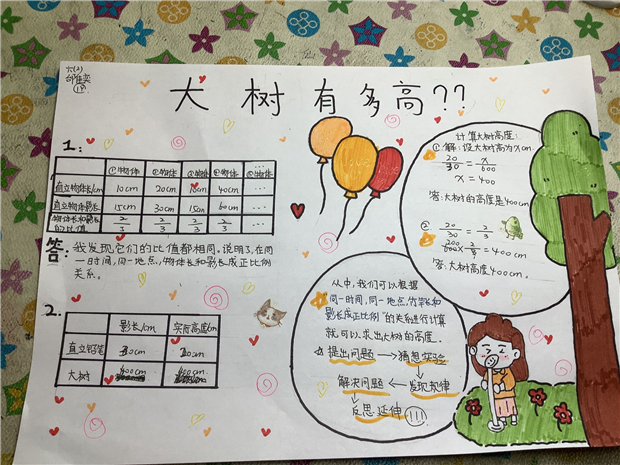 六(2)
18
大树有多高??
1:
①物体 ②物体 ③物体 ④物体 ⑤物体 …
直立物体长/cm 10cm 20cm 10cm 40cm …
直立物体影长 15cm 30cm 15cm 60cm …
物体长和影长的比值 2/3 2/3 2/3 2/3 …
答:我发现,它们的比值都相同,说明3,在同
一时间,同一地点,物体长和影长成正比例
关系。
2.
影长/cm 实际高度/cm
直立铅笔 30cm 20cm
大树 600cm 400cm
计算大树高度:
① 解:设大树高为Xcm.
20/30 = x/600
x = 400
答:大树的高度是400cm
②
20/30 = 2/3
600×2/3 = 400cm
答:大树高度400cm。
从中,我们可以根据
"同一时间,同一地点,竹竿长和
影长成正比例"的关系进行计算
就可以求出大树的高度。
提出问题→猜想实验
解决问题←发现规律
反思延伸